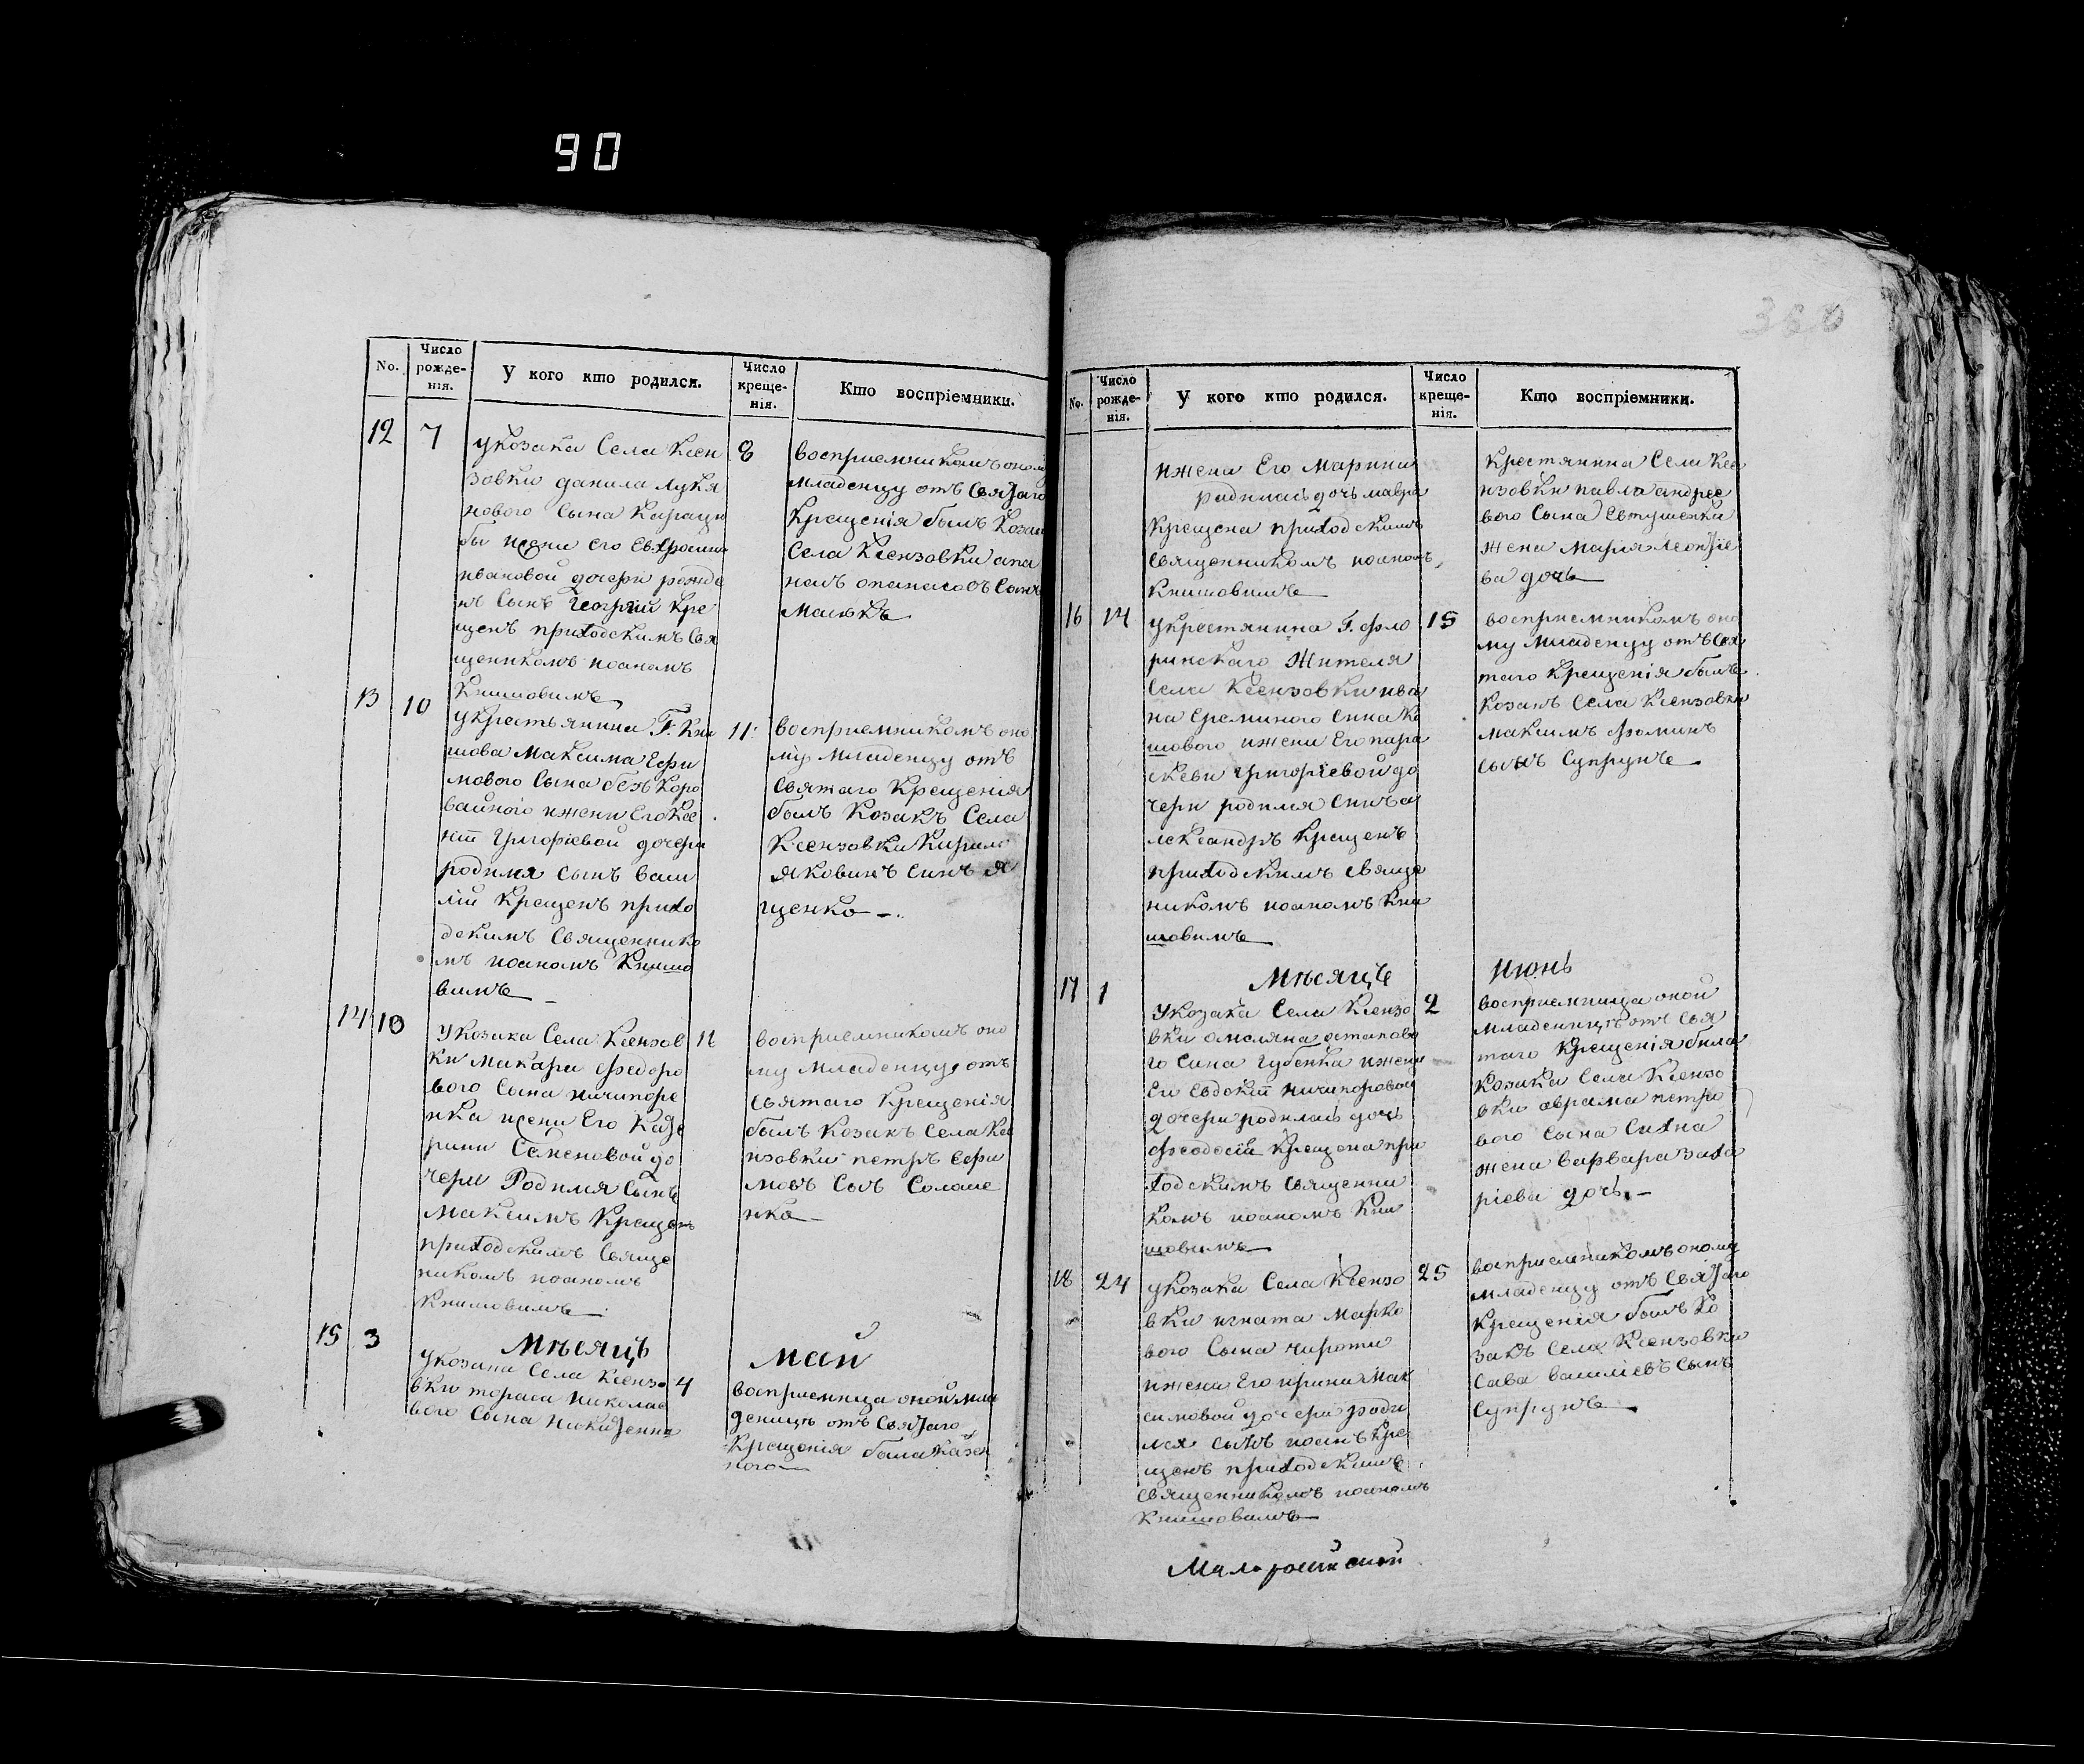 90
380
No.
Число рожде-нія.
У кого кто родился.
Число креще-нія.
Кто воспріемники.
12 7
у козака Села Ксен
зовки данила лукя
нового Сына Карацю
бы жени Его Евфросини
ивановой дочери рожде
нъ Сынъ Георгій Кре
щенъ приходскимъ Свя
щеникомъ иоаномъ
Книшовимъ
8
восприемникомъ оному
младенцу отъ Святаго
Крещенія былъ Козак
Села Ксензовки апа
насъ опанасовъ Сынъ
Малюкъ
13 10
у крестьянина Г. Кни
шова Максима Ефи
мового Сына безъ Коро
вайного и жени Его Ксе
ніи Григоріевой дочери
родился сынъ васи
лій Крещенъ прихо
дскимъ Священнико
мъ иоаномъ Книшо
вимъ
11
восприемникомъ оно
му младенцу отъ
Святаго Крещенія
былъ Козакъ Села
Ксензовки Кирило
яковинъ синъ я
щенко
14 10
у козака Села Ксензов
ки Макара Федоро
вого Сына ничипоре
нка жени Его Кате
рини Семеновой до
чери Родился Сынъ
Максимъ Крещенъ
приходскимъ Свяще
никомъ иоаномъ
Книшовимъ
11
восприемникомъ оно
му младенцу отъ
Святаго Крещенія
былъ Козакъ Села Ксе
нзовки петръ Ефи
мовъ Сыъ Соломе
нко
Мѣсяцъ Маи
15 3
у козака Села Ксензо
вки тораса николае
вого Сына никитенка
4
восприемница оной мла
деницъ отъ Святаго
Крещенія была казен
ного
No.
Число рожде-нія.
У кого кто родился.
Число креще-нія.
Кто воспріемники.
и жени Его Марини
родилась дочь мавра
Крещена приходскимъ
Священникомъ иоаномъ
Книшовимъ
Крестянина Села Ксе
нзовки павла андрее
вого Сына Евтушенка
жена Марія Леонтіе
ва дочь
16 14
у крестянина Г. фло
ринскаго Жителя
Села Ксензовки ива
на Ереминого сина Ко
шового и жени Его пара
скеви григоріевой до
чери родился синъ а
лександръ Крещенъ
приходскимъ свяще
никомъ иоаномъ Кни
шовимъ
15
восприемникомъ оно
му младенцу отъ Свя
таго Крещенія былъ
Козакъ Села Ксензовки
Максимъ фоминъ
сынъ Супрунъ
Мѣсяцъ июнь
17 1
у козака Села Ксензо
вки омеляна остапово
го сина Губенка и жени
Его Евдокіи ничипоровой
дочери родилась дочь
феодосія Крещена при
ходскимъ Священни
комъ иоаномъ Кни
шовимъ
2
восприемница оной
младеницъ отъ Свя
таго Крещенія била
Козака Села Ксензо
вки аврама петро
вого Сына Сахна
жена варвара заха
ріева дочь
18 24
у козака Села Ксензо
вки игната Марко
вого Сына чироти
и жени Его ирини Мак
симовой дочери роди
лся сынъ иоанъ Кре
щенъ приходскимъ
Священникомъ иоаномъ
Книшовимъ
25
восприемникомъ оному
младенцу отъ Святаго
Крещенія былъ Ко
закъ Села Ксензовки
Сава василіевъ Сынъ
Супрунъ
Малоросийской